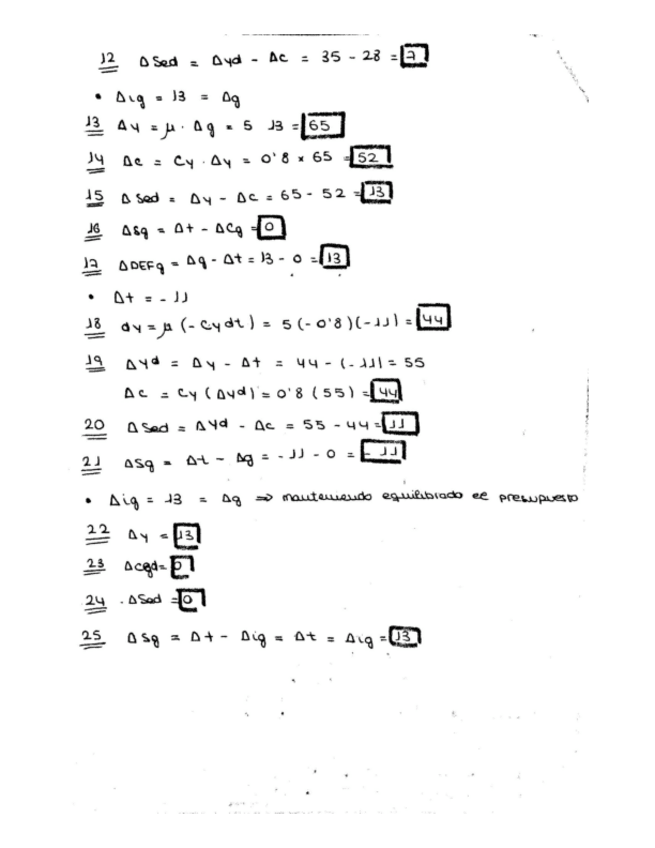 12 ΔSed = Δyd - Δc = 35 - 28 = 7
• Δig = 13 = Δg
13 Δy = μ · Δg = 5 13 = 65
14 Δc = Cy · Δy = 0'8 × 65 = 52
15 ΔSed = Δy - Δc = 65 - 52 = 13
16 ΔSg = Δt - ΔCg = 0
17 ΔDEFg = Δg - Δt = 13 - 0 = 13
• Δt = - 11
18 dy = μ (- Cy dt) = 5 (- 0'8) (- 11) = 44
19 Δyd = Δy - Δt = 44 - (- 11) = 55
Δc = Cy (Δyd) = 0'8 (55) = 44
20 ΔSed = Δyd - Δc = 55 - 44 = 11
21 ΔSg = Δt - Δg = - 11 - 0 = - 11
• Δig = 13 = Δg ⇒ manteniendo equilibrado el presupuesto
22 Δy = 13
23 = 0
24 . ΔSed = 0
25 ΔSg = Δt - Δig = Δt = Δig = 13